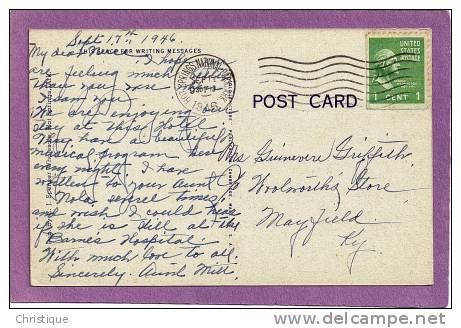 Sept 17th 1946.
THIS SPACE FOR WRITING MESSAGES
My dear Niece: I hope you
are feeling much better
than you were when
I saw you.
We are enjoying our
stay at this Hotel
They have a beautiful
musical program here
every night. I have
written to your Aunt
Nola several times,
and wish I could hear
if she is still at the
Barnes Hospital.
With much love to all.
Sincerely. Aunt Mill.
SEP 17
1946
UNITED STATES
POSTAGE
1 CENT 1
POST CARD
Mrs Guinevere Griffith
Woolworth's Store
Mayfield.
Ky.
© Christique
http://www.delcampe.net